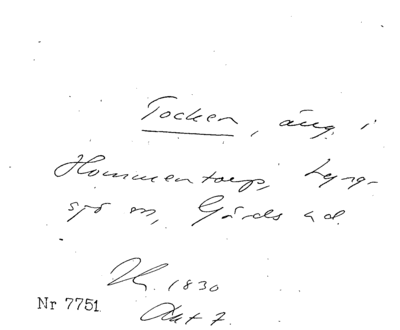 Tocken, äng i
Hommentorp, Lyng-
sjö sn, Gärds hd.
1830
Akt 7.
Nr 7751